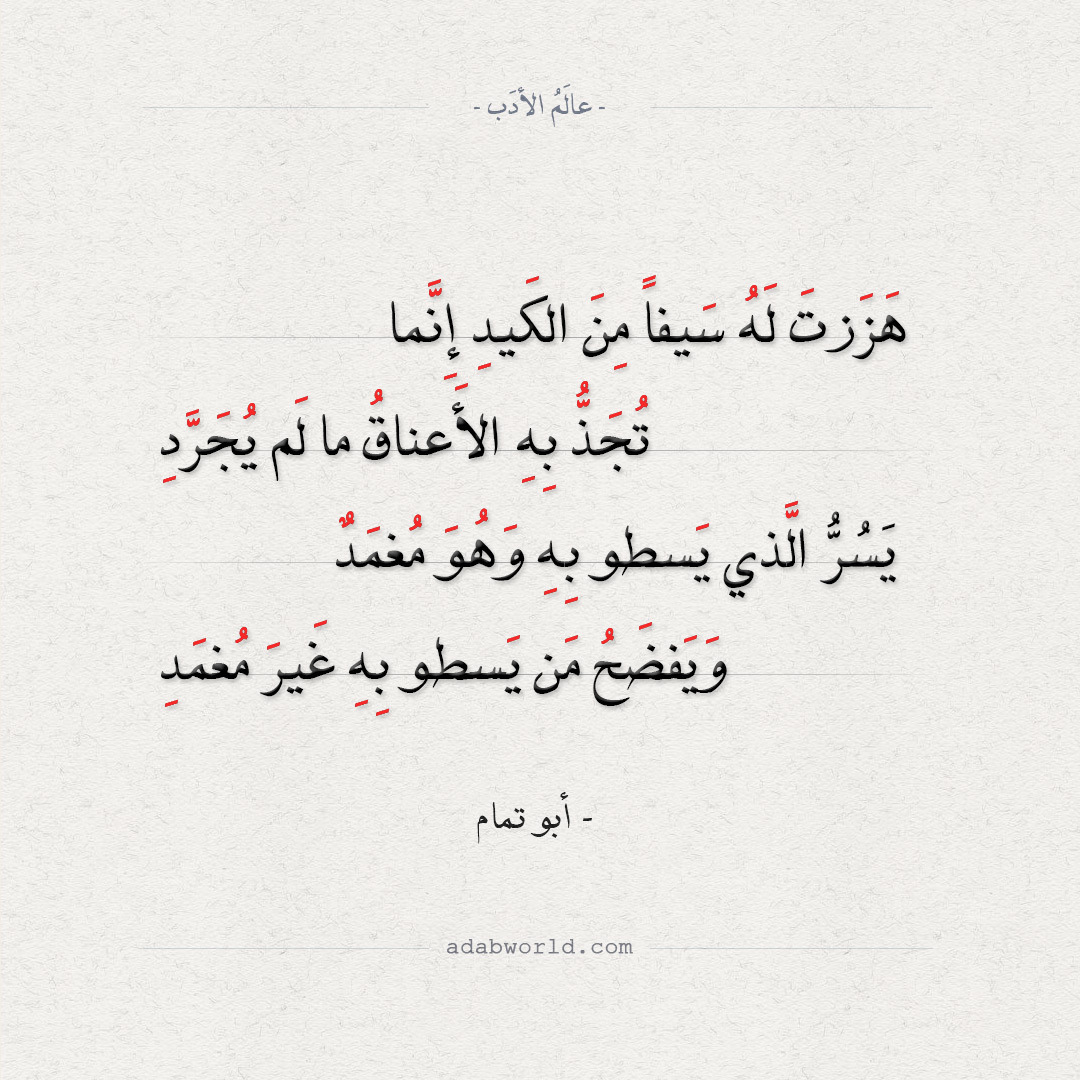 - عالَمُ الأدَب -
هَزَزتَ لَهُ سَيفاً مِنَ الكَيدِ إِنَّما
تُجَذُّ بِهِ الأَعناقُ ما لَم يُجَرَّدِ
يَسُرُّ الَّذي يَسطو بِهِ وَهُوَ مُغمَدٌ
وَيَفضَحُ مَن يَسطو بِهِ غَيرَ مُغمَدِ
- أبو تمام
adabworld.com